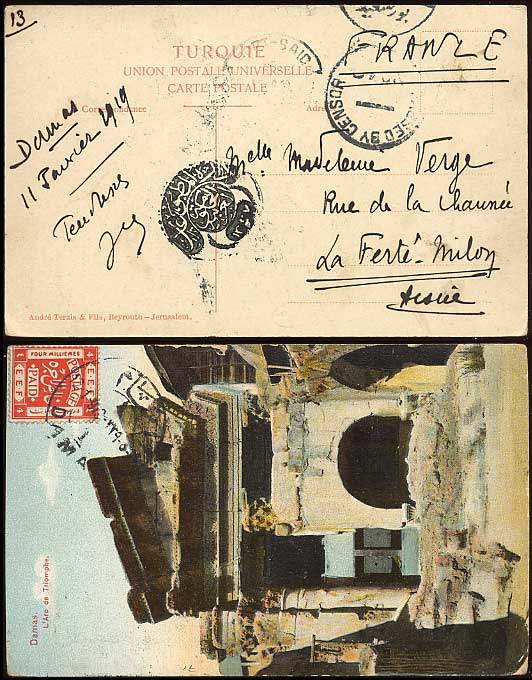 13
TURQUIE
UNION POSTALE UNIVERSELLE
CARTE POSTALE
Correspondance
FRANCE
SAID
PASSED BY CENSOR
Damas
11 Janvier 1919
Tendresse
Melle Madeleine Verge
Rue de la Chaunée
La Ferté-Milon
Aisne
André Terzis & Fils, Beyrouth-Jerusalem.
FOUR MILLIEMES
E.E.F.
POSTAGE
PAID
E.E.F.
4
4
Damas.
L'Arc de Triomphe.